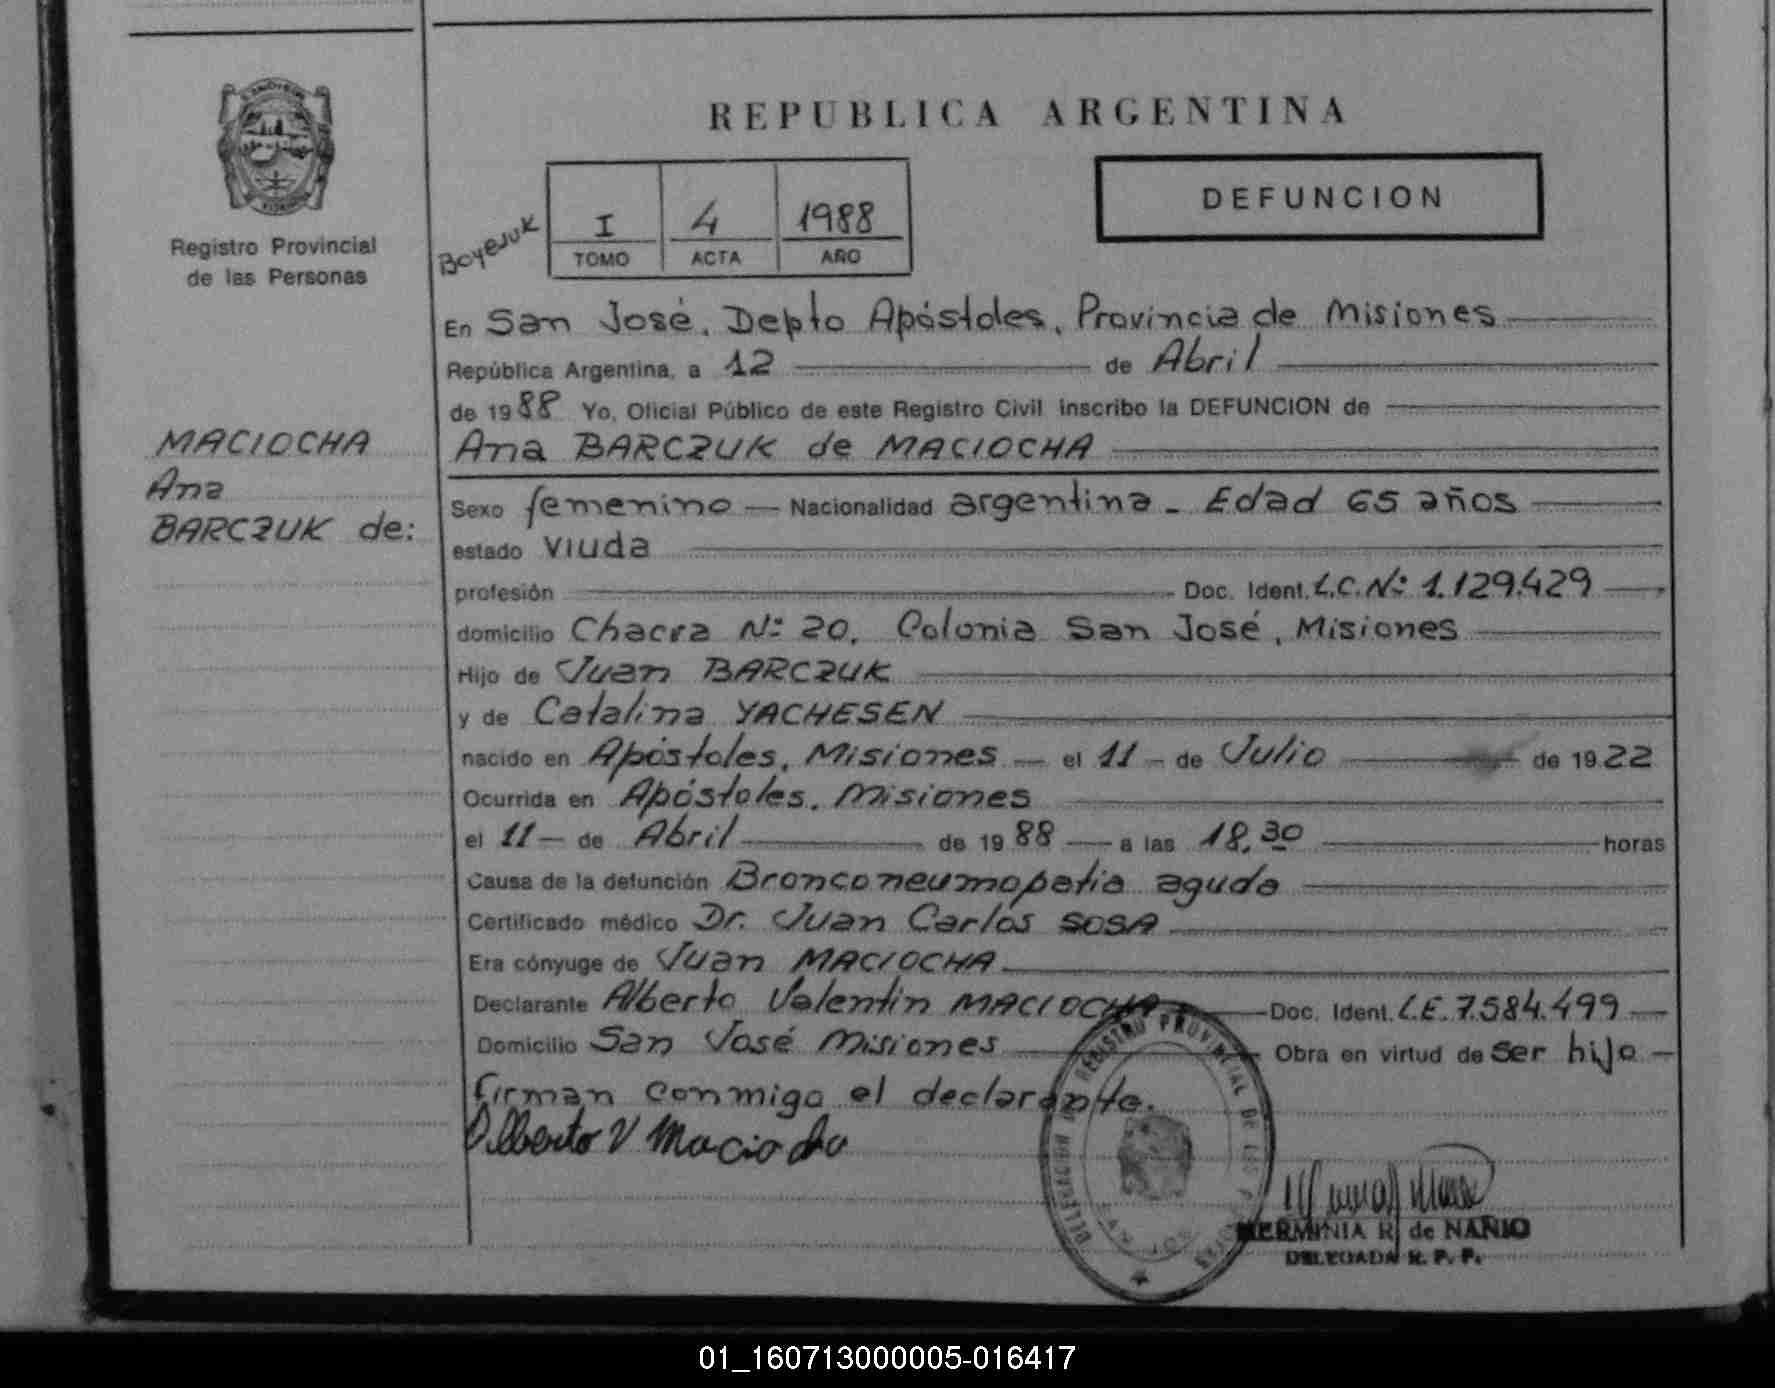 REPUBLICA ARGENTINA
DEFUNCION
Boyejuk
I 4 1988
TOMO ACTA AÑO
Registro Provincial
de las Personas
MACIOCHA
Ana
BARCZUK de:
En San José, Depto Apóstoles, Provincia de Misiones
República Argentina, a 12 de Abril
de 1988 Yo, Oficial Público de este Registro Civil inscribo la DEFUNCION de
Ana BARCZUK de MACIOCHA
Sexo femenino — Nacionalidad argentina - Edad 65 años
estado viuda
profesión Doc. Ident. L.C. Nº 1.129.429
domicilio Chacra Nº 20, Colonia San José, Misiones
Hijo de Juan BARCZUK
y de Catalina YACHESEN
nacido en Apóstoles, Misiones — el 11 - de Julio de 1922
Ocurrida en Apóstoles, Misiones
el 11 - de Abril de 1988 a las 18,30 horas
Causa de la defunción Bronconeumopatia aguda
Certificado médico Dr. Juan Carlos SOSA
Era cónyuge de Juan MACIOCHA
Declarante Alberto Valentin MACIOCHA Doc. Ident. L.E. 7.584.499
Domicilio San José Misiones Obra en virtud de ser hijo
firman conmigo el declarante.
Alberto V Maciocha
REGISTRO PROVINCIAL DE LAS
HERMINIA R. de NAÑIO
DELEGADA R. P. P.
01_160713000005-016417